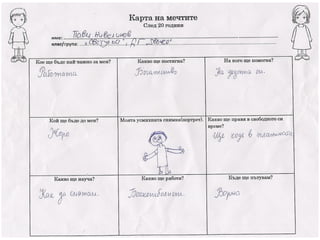 Карта на мечтите
След 20 години
име: Пави Нивелинов
клас/група: "Звездичка", ДГ "Звънче"
Кое ще бъде най важно за мен?
Работата
Какво ще постигна?
Богатство
На кого ще помогна?
На другите си.
Кой ще бъде до мен?
Жоро
Моята усмихната снимка(портрет).
Какво ще правя в свободното си
време?
Ще ходя в планината
Какво ще науча?
Как да смятам.
Какво ще работя?
Баскетболист.
Къде ще пътувам?
Варна